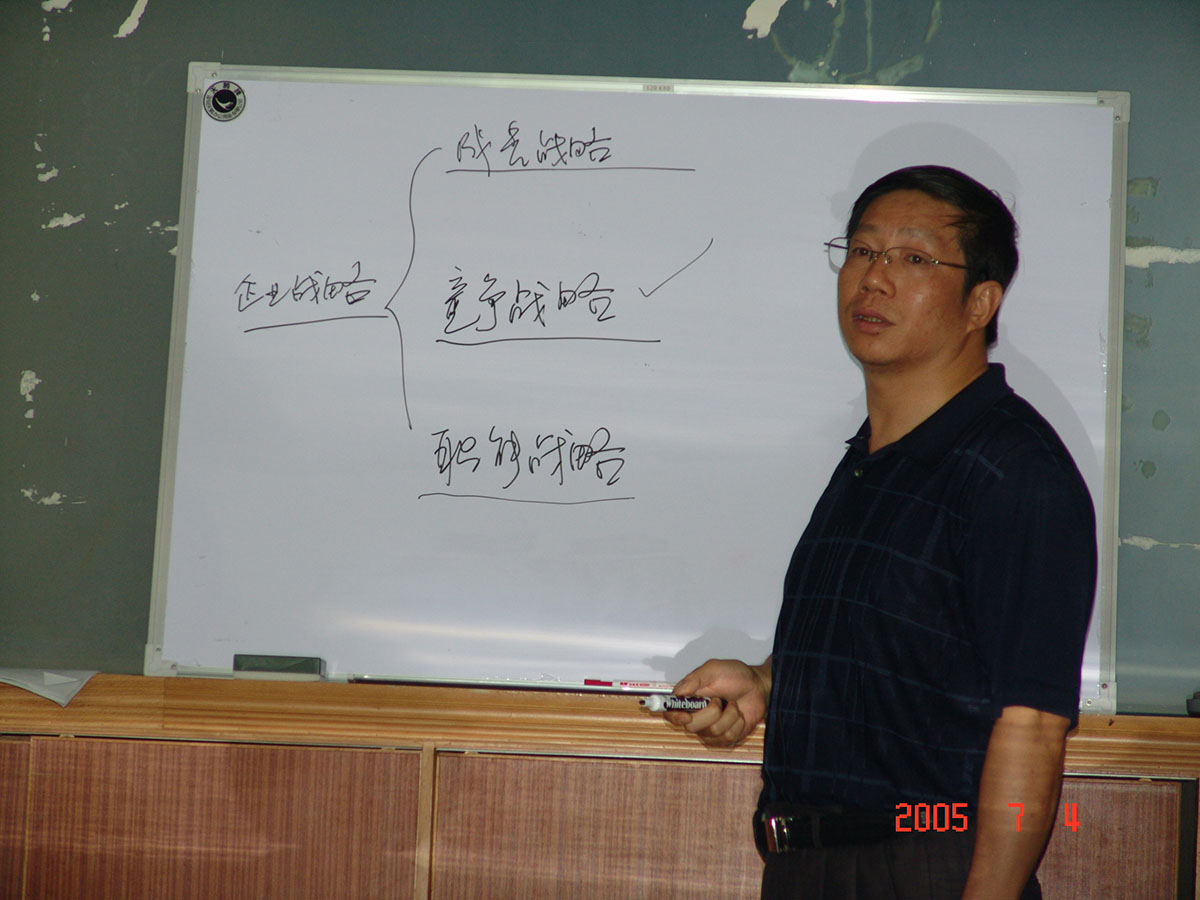 成长战略
企业战略
竞争战略 ✓
职能战略
Whiteboard
2005 7 4